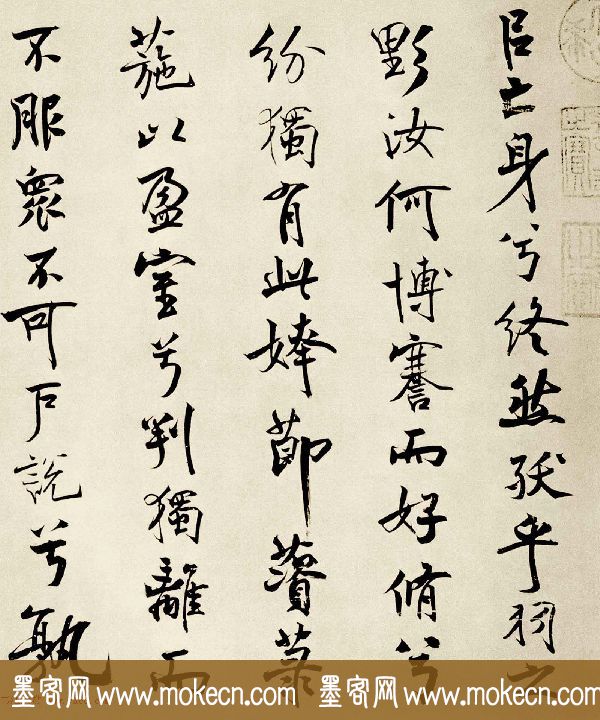 㠯亡身兮終然殀乎羽之
野汝何博謇而好脩兮
紛獨有此姱節薋菉
葹以盈室兮判獨離而
不服衆不可户說兮孰
墨客网 www.mokecn.com 墨客网 www.mokecn.com